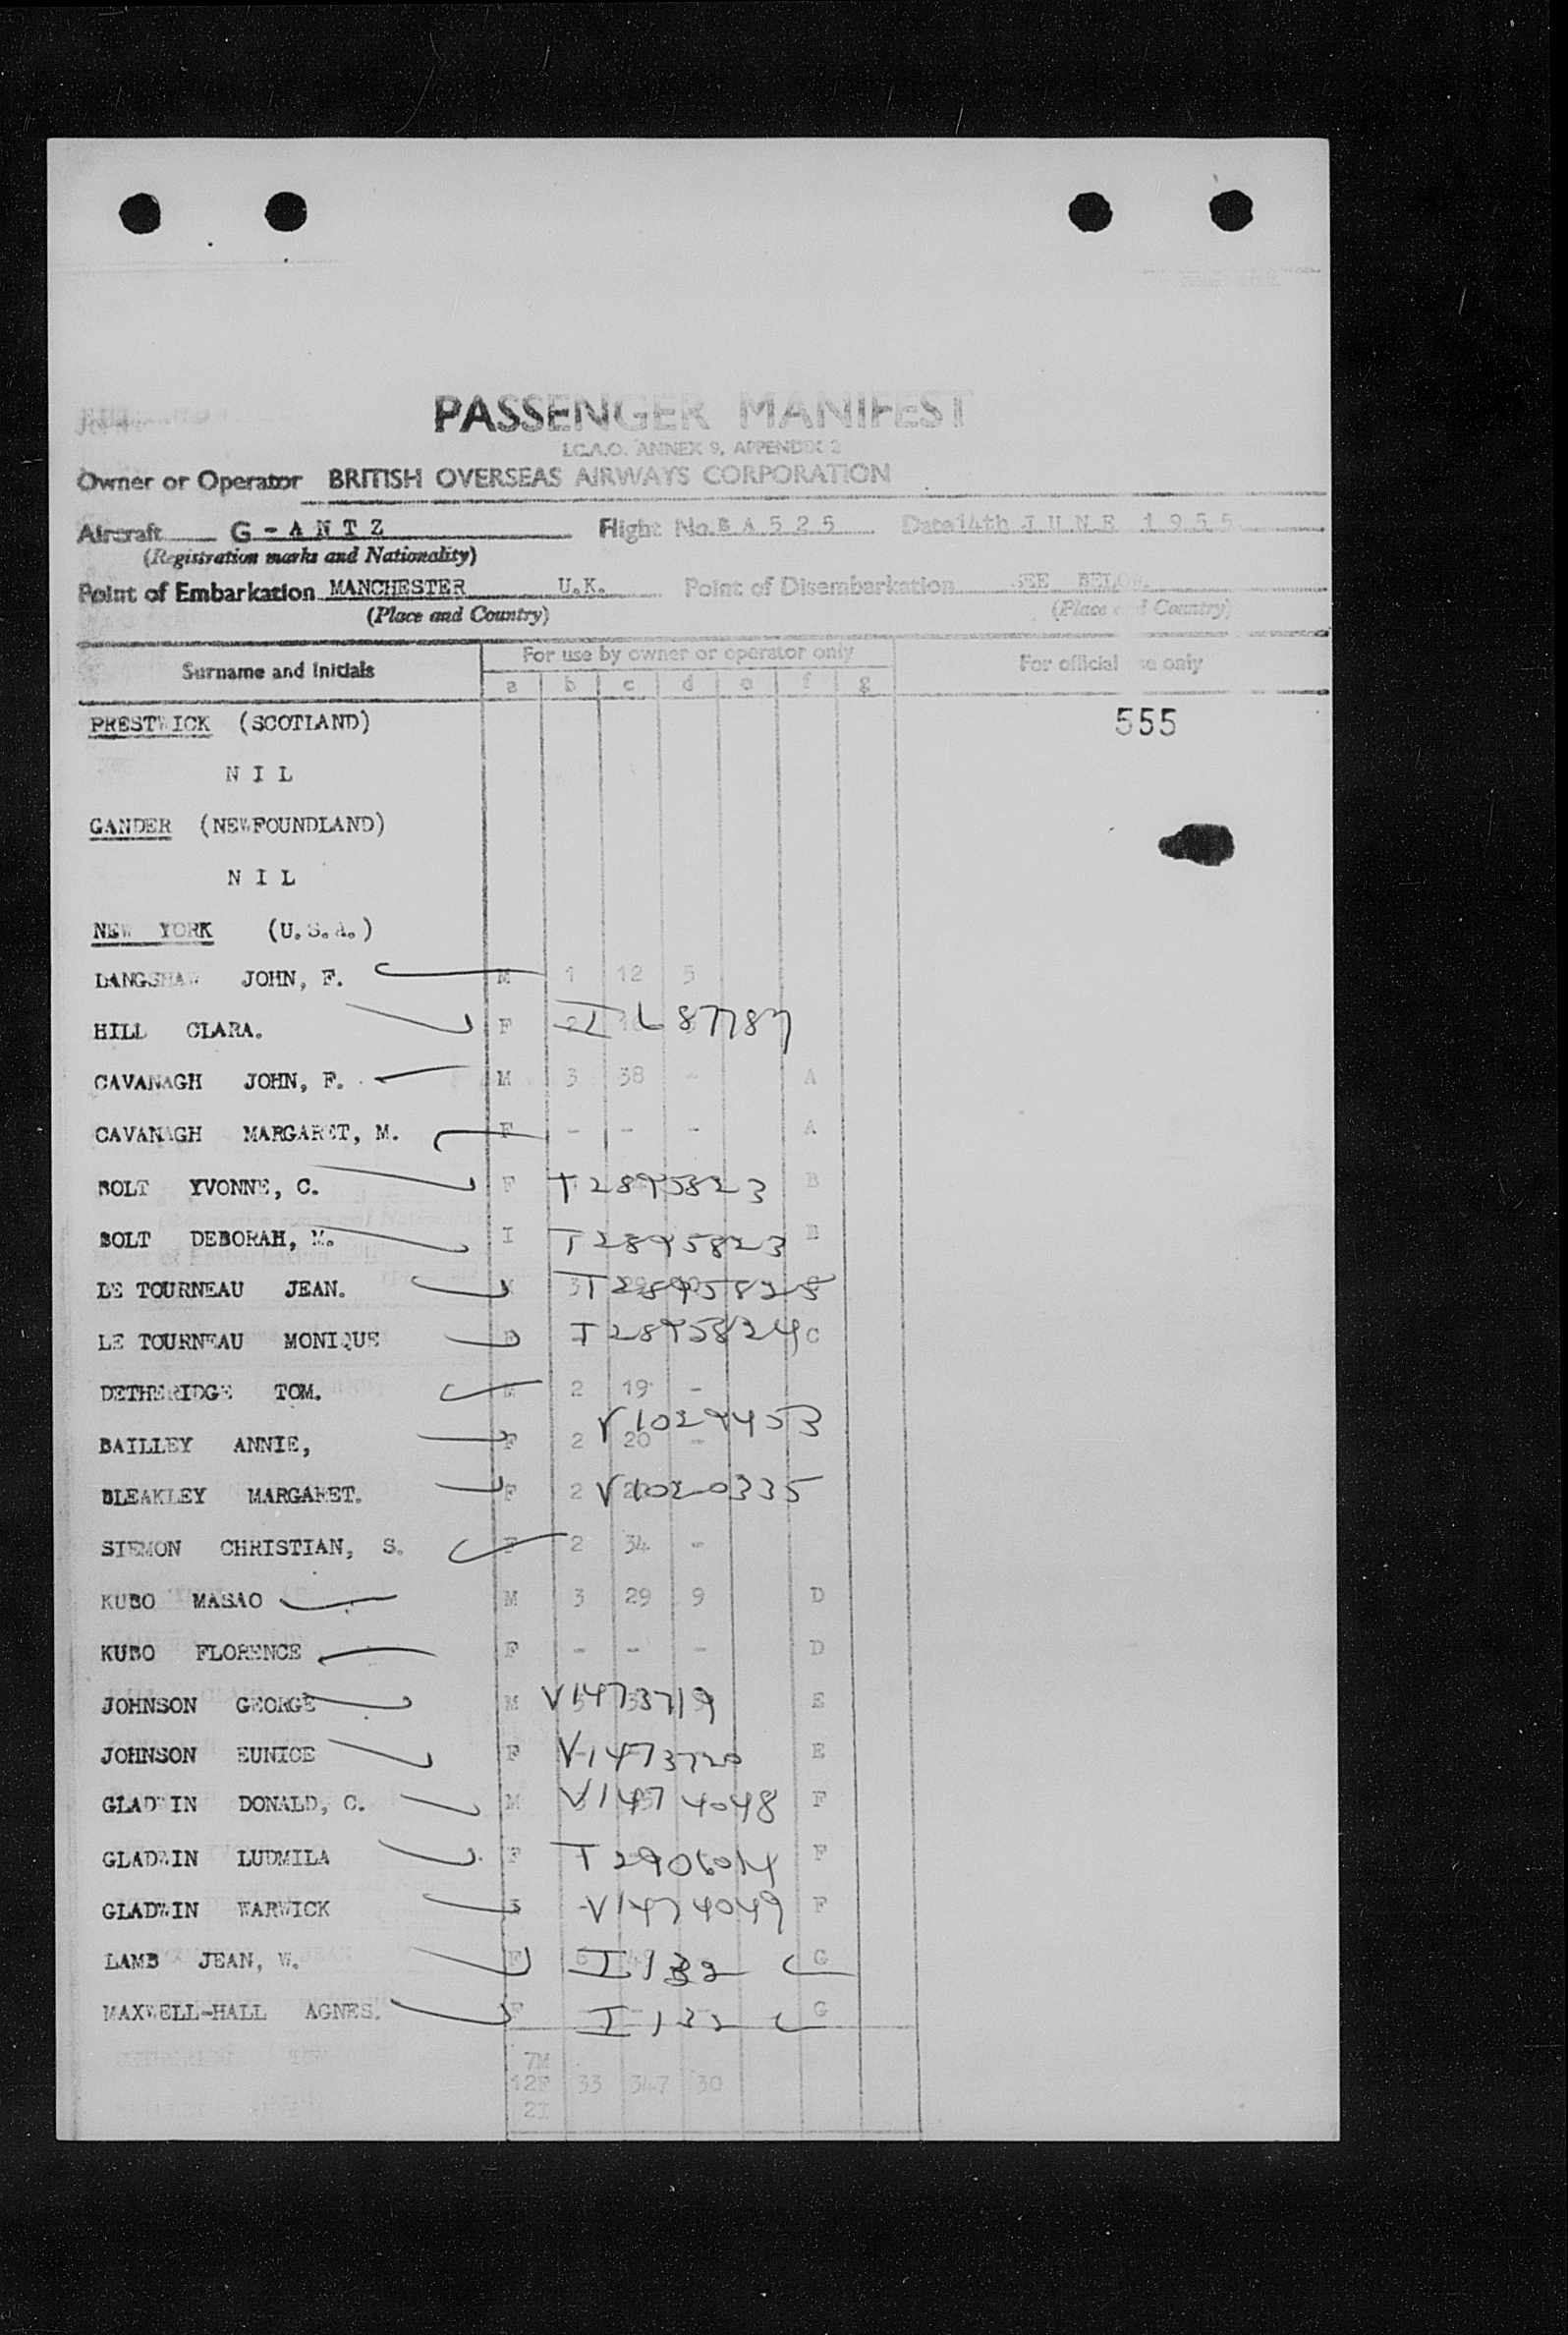 PASSENGER MANIFEST
I.C.A.O. ANNEX 9, APPENDIX 2
Owner or Operator BRITISH OVERSEAS AIRWAYS CORPORATION
Aircraft G-ANTZ Flight No. BA525 Date 14th JUNE 1955
(Registration marks and Nationality)
Point of Embarkation MANCHESTER U.K. Point of Disembarkation SEE BELOW.
(Place and Country) (Place and Country)
Surname and Initials For use by owner or operator only For official use only
a b c d e f g
PRESTWICK (SCOTLAND) 555
NIL
GANDER (NEWFOUNDLAND)
NIL
NEW YORK (U.S.A.)
LANGSHAW JOHN, F. M 1 12 5
HILL CLARA. F 2
CAVANAGH JOHN, F. M 3 38 - A
CAVANAGH MARGARET, M. F - - - A
BOLT YVONNE, C. F T2895823 B
BOLT DEBORAH, M. I T2895823 B
DE TOURNEAU JEAN. M 3 T2895828
LE TOURNEAU MONIQUE F T2895824 C
DETHERIDGE TOM. M 2 19 -
V1029453
BAILLEY ANNIE, F 2 20 -
BLEAKLEY MARGARET. F 2 V1020335
SIEMON CHRISTIAN, S. F 2 34 -
KUBO MASAO M 3 29 9 D
KUBO FLORENCE F - - - D
JOHNSON GEORGE M V1473719 E
JOHNSON EUNICE F V1473720 E
GLADWIN DONALD, C. M V1474048 F
GLADWIN LUDMILA F T2906014 F
GLADWIN WARWICK V1474049 F
LAMB JEAN, W. F I132 G
MAXWELL-HALL AGNES. F I132 G
7M
12F 33 347 30
2I